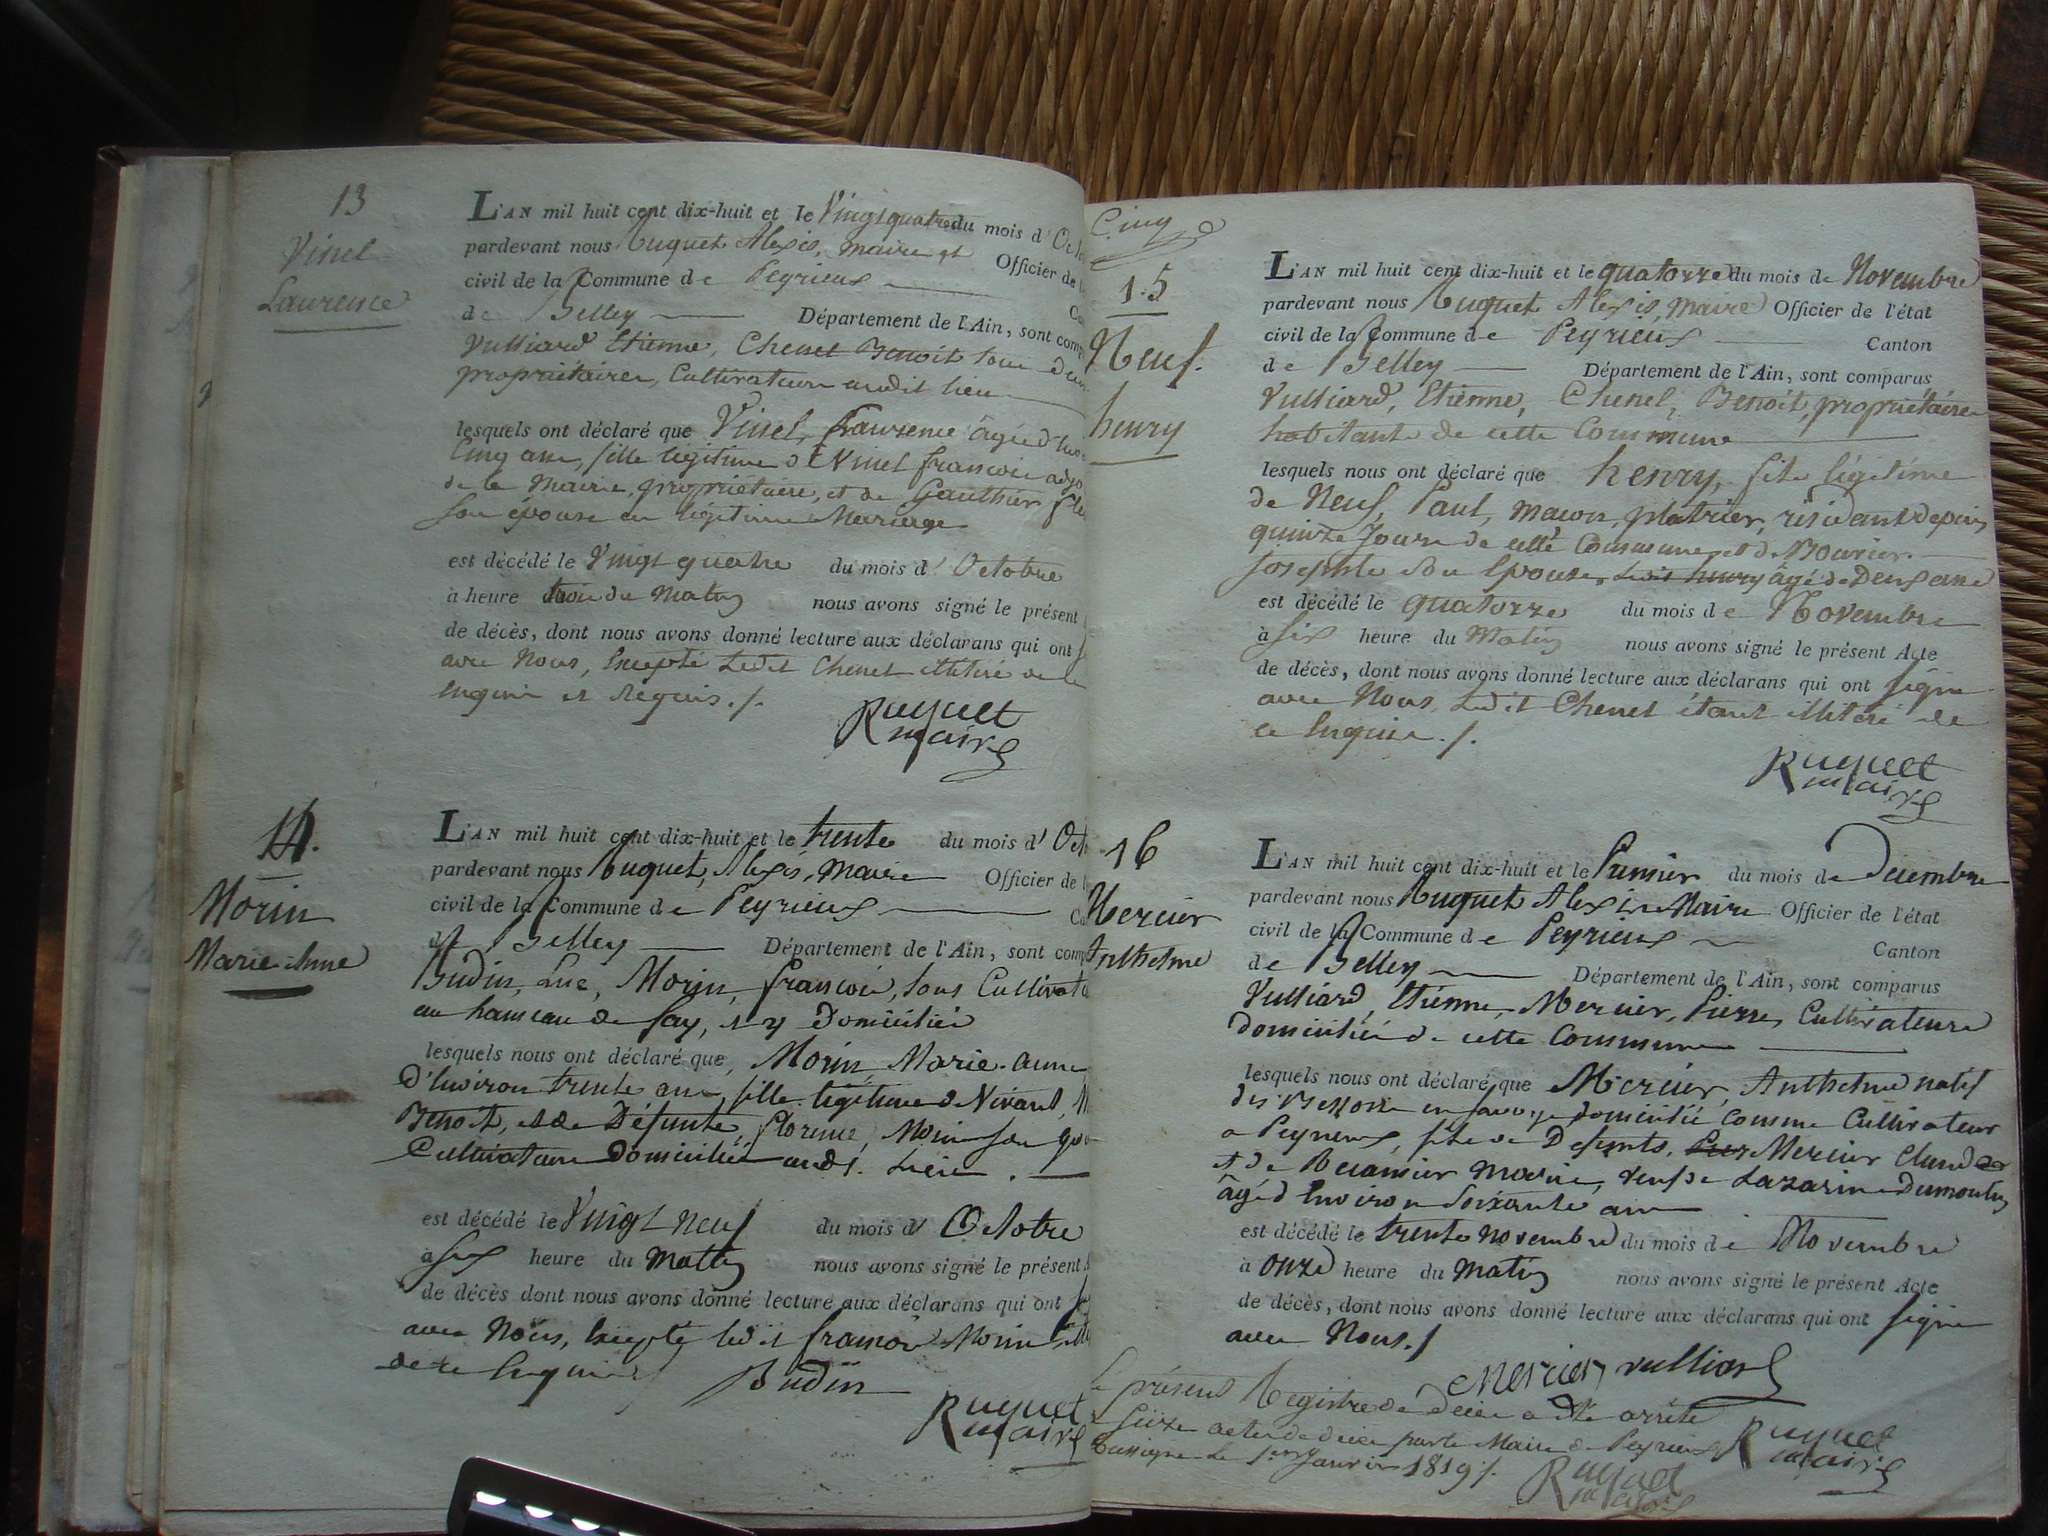 13
Vinel
Laurence
L'AN mil huit cent dix-huit et le Vingt quatre du mois d'Octo
pardevant nous Ruquet Alexis, maire et Officier de l
civil de la Commune de Peyrieux Ca
de Belley Département de l'Ain, sont comp
Vulliard Etienne, Chenet Benoit tous deux
propriétaires, Cultivateurs audit lieu
lesquels ont déclaré que Vinel, Laurence âgée d'
Cinq ans, fille légitime de Vinel françois adjo
de la Mairie, propriétaire, et de Gauthier
son épouse en légitime Mariage
est décédé le Vingt quatre du mois d'Octobre
à heure trois du Matin nous avons signé le présent
de décès, dont nous avons donné lecture aux déclarans qui ont
avec Nous, Excepté Ledit Chenet illitéré de
Enquis et Requis./.
Ruquet
maire
14.
Morin
Marie-Anne
L'AN mil huit cent dix-huit et le trente du mois d'Oct
pardevant nous Ruquet, Alexis, Maire Officier de l
civil de la Commune de Peyrieux Ca
de Belley Département de l'Ain, sont comp
Budin, Luc, Morin, françois, tous Cultivate
au hameau de fay, et y Domiciliés
lesquels nous ont déclaré que, Morin Marie-anne
D'Environ trente ans, fille légitime de Vivant,
Benoit, et de Défunte, Florence, Morin son
Cultivateurs Domiciliés aud. Lieu.
est décédé le Vingt neuf du mois d'Octobre
à Six heure du Matin nous avons signé le présent
de décès dont nous avons donné lecture aux déclarans qui ont
avec Nous, Excepté ledit françois Morin,
de ce Enquis
Budin
Ruquet
maire
Cinq
15
Neuf.
henry
L'AN mil huit cent dix-huit et le quatorze du mois de Novembre
pardevant nous Ruquet Alexis, Maire Officier de l'état
civil de la Commune de Peyrieux Canton
de Belley Département de l'Ain, sont comparus
Vulliard, Etienne, Chenet, Benoit, propriétaires
habitants de cette Commune
lesquels nous ont déclaré que henry, fils légitime
de Neuf, Paul, maçon, platrier, résidant depuis
quinze Jours de cette Commune et de Bouvier.
Josephte Son Epouse, Ledit henry âgé de Deux ans
est décédé le quatorze du mois de Novembre
à Six heure du Matin nous avons signé le présent Acte
de décès, dont nous avons donné lecture aux déclarans qui ont signé
avec Nous, Ledit Chenet étant illitéré de
ce Enquis./.
Ruquet
maire
16
Mercier
Anthelme
L'AN mil huit cent dix-huit et le Premier du mois de Décembre
pardevant nous Ruquet Alexis Maire Officier de l'état
civil de la Commune de Peyrieux Canton
de Belley Département de l'Ain, sont comparus
Vulliard, Etienne, Mercier, Pierre, Cultivateurs
domiciliés de cette Commune
lesquels nous ont déclaré que Mercier, Anthelme natif
en Savoye domicilié comme Cultivateur
a Peyrieux, fils de Défunts, Mercier Claude
et de Marie, veuf de Lazarine Dumoulin
âgé d'Environ Soixante ans
est décédé le trente novembre du mois de Novembre
à Onze heure du Matin nous avons signé le présent Acte
de décès, dont nous avons donné lecture aux déclarans qui ont signé
avec Nous./
Mercier vulliard
Le présent Registre de décès a été arrêté
a Seize actes de décès par le Maire de Peyrieux
Soussigné Le 1er Janvier 1819/.
Ruquet
maire
Ruquet
maire